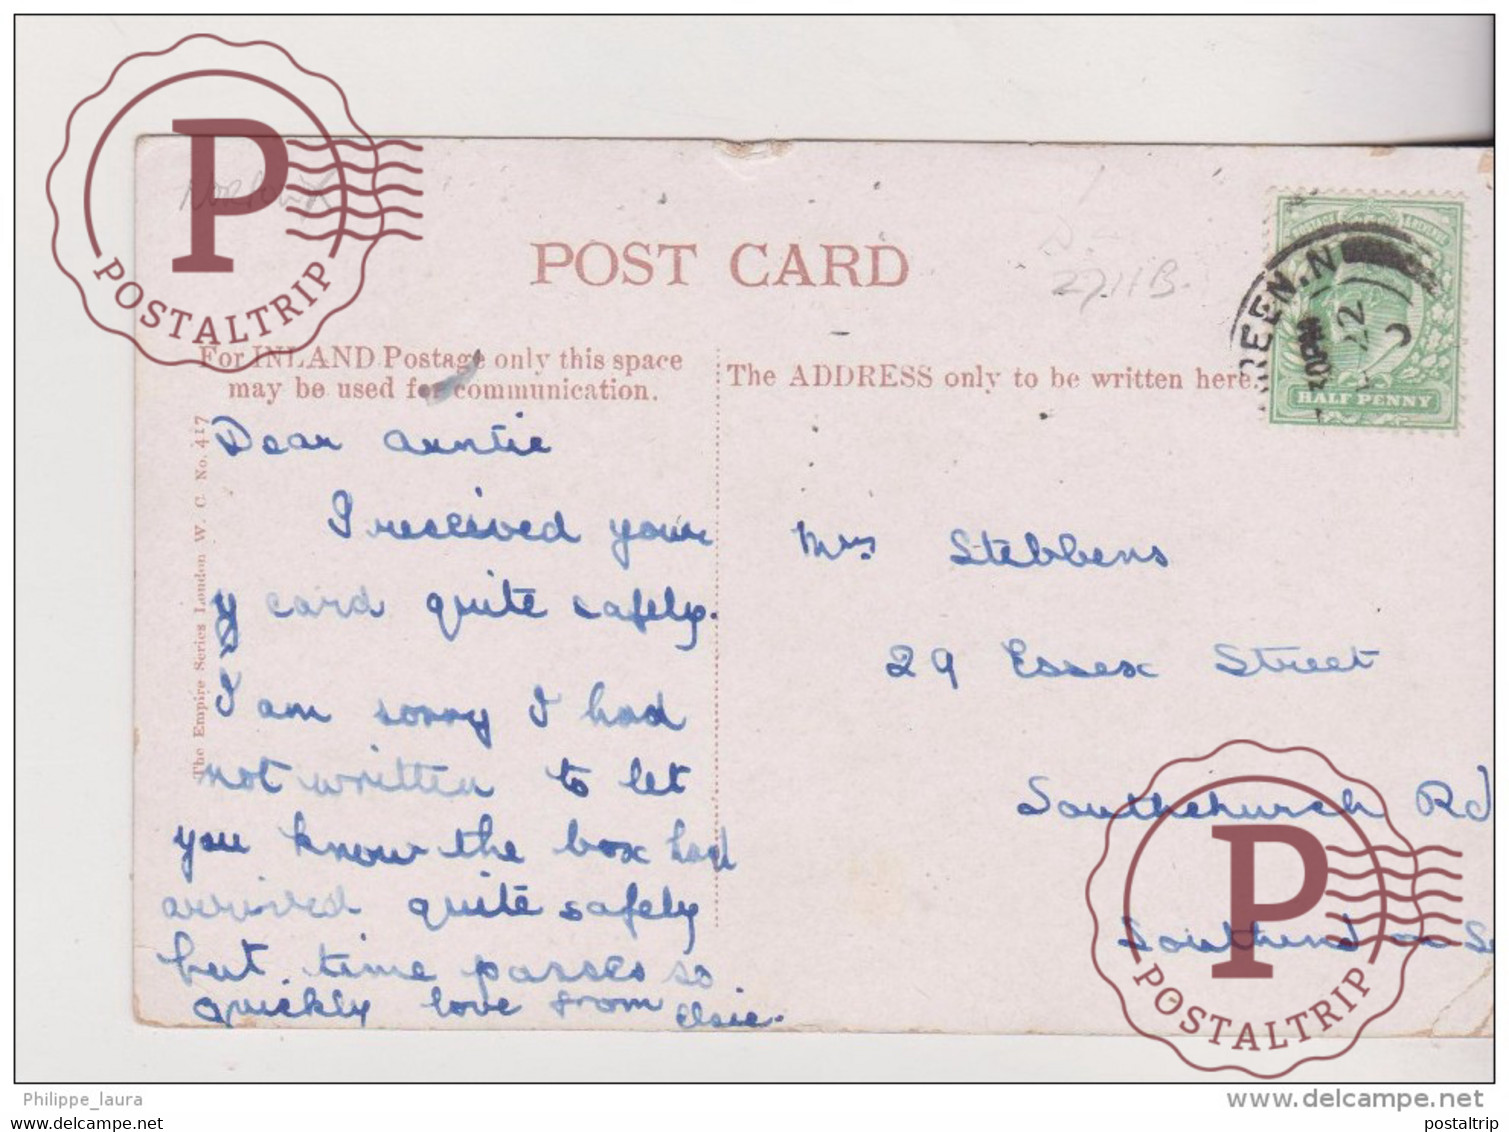 POSTALTRIP
P
NORFOLK
POST CARD
2711B.
For INLAND Postage only this space
may be used for communication.
The ADDRESS only to be written here.
REEN.N
30PM
22
HALF PENNY
The Empire Series London W. C. No. 417
Dear Auntie
I received your
y card quite safely.
I am sorry I had
not written to let
you know the box had
arrived quite safely
but time passes so
quickly love from Elsie.
Mrs Stebbens
29 Essex Street
Southchurch Rd
Southend on Se
P
POSTALTRIP
Philippe_laura
www.delcampe.net
www.postaltrip.com
postaltrip